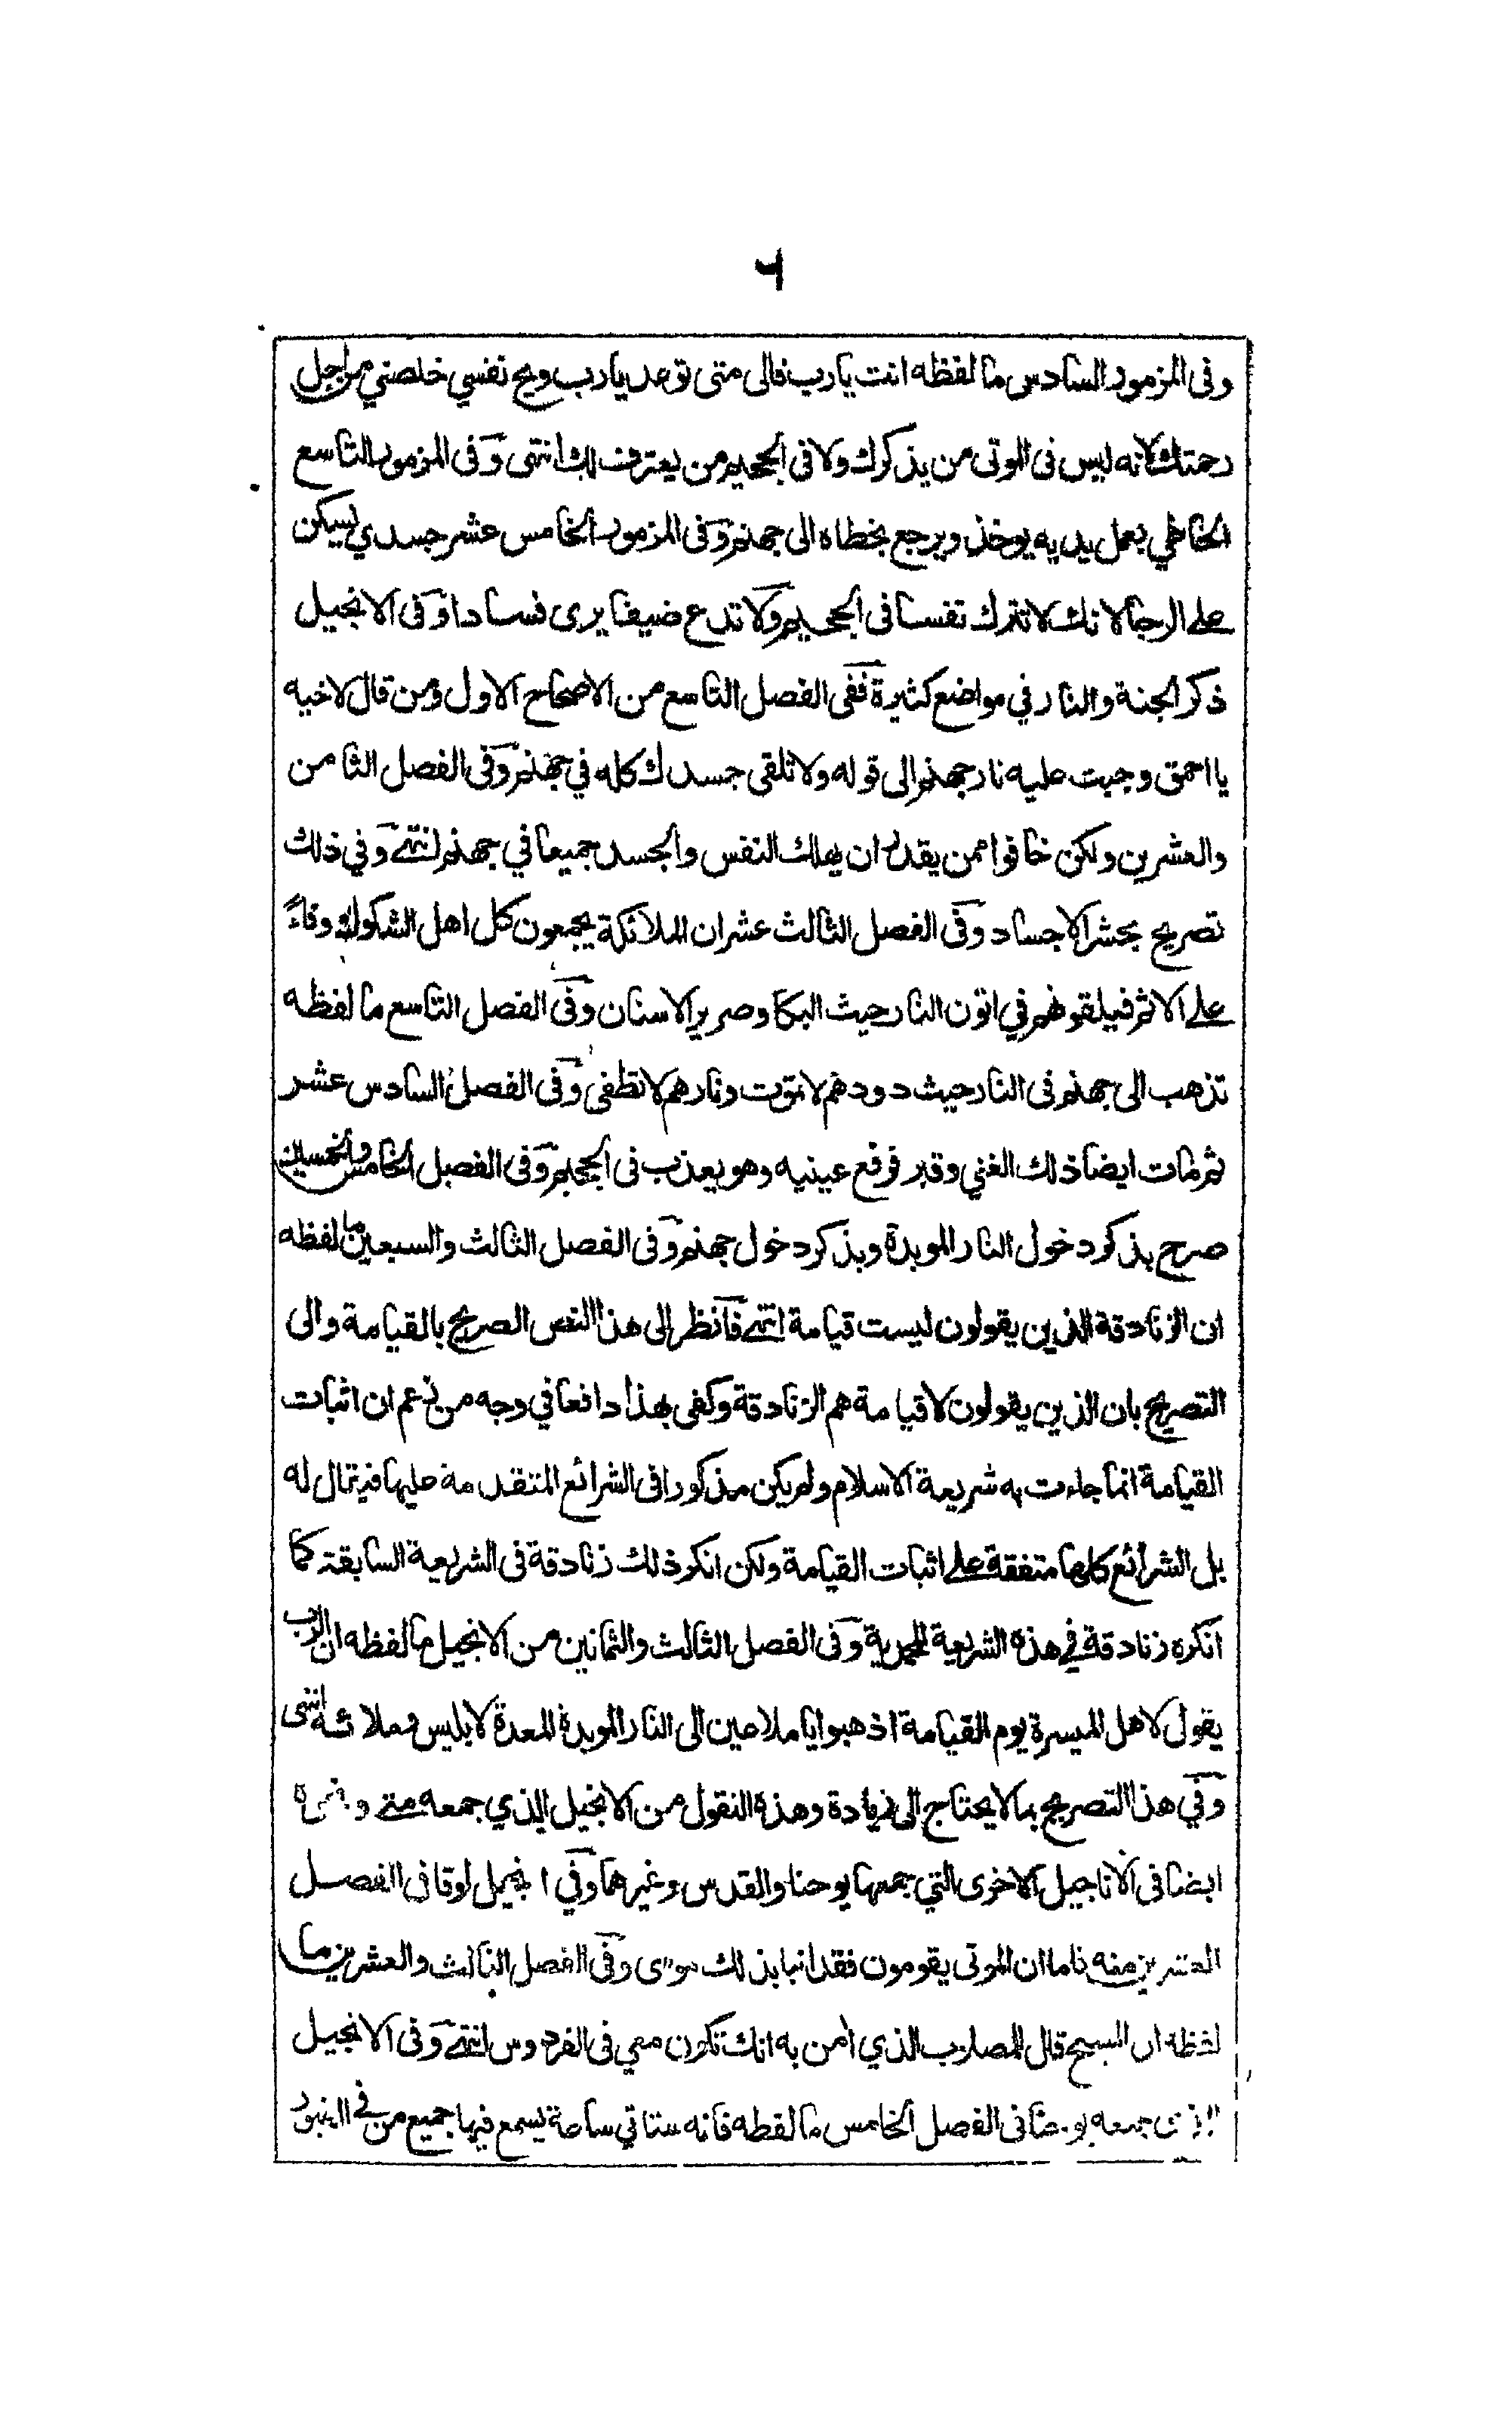 ٦
وفى المزمور السادس ما لفظه انت يارب فالى متى توعد يارب ويح نفسي خلصني من اجل
رحمتك لانه ليس فى الموتى من يذكرك ولا فى الجحيم من يعترف لك انتهى وفى المزمور التاسع
الخاطي بعمل يديه يوخذ ويرجع بخطاه الى جهنم وفى المزمور الخامس عشر جسدي ليسكن
على الرجا لانك لا تترك نفسا فى الجحيم ولا تدع ضيفا يرى فسادا وفى الانجيل
ذكر الجنة والنار في مواضع كثيرة ففى الفصل التاسع من الاصحاح الاول ومن قال لاخيه
يا احمق وجبت عليه نار جهنم الى قوله ولا تلقى جسدك كله في جهنم وفى الفصل الثامن
والعشرين ولكن خافوا ممن يقدر ان يهلك النفس والجسد جميعا في جهنم انتهى وفي ذلك
تصريح بحشر الاجساد وفى الفصل الثالث عشر ان الملائكة يجمعون كل اهل الشكوك
على الاثم فيلقوهم في اتون النار حيث البكا وصرير الاسنان وفى الفصل التاسع ما لفظه
تذهب الى جهنم فى النار حيث دودهم لا تموت ونارهم لا تطفى وفى الفصل السادس عشر
ثم مات ايضا ذلك الغني وقبر فرفع عينيه وهو يعذب فى الجحيم وفى الفصل الخامس والخمسين
صرح بذكر دخول النار الموبدة وبذكر دخول جهنم وفى الفصل الثالث والسبعين ما لفظه
ان الزنادقة الذين يقولون ليست قيامة انتهى فانظر الى هذا النص الصريح بالقيامة والى
التصريح بان الذين يقولون لا قيامة هم الزنادقة وكفى بهذا دافعا في وجه من زعم ان اثبات
القيامة انما جاءت به شريعة الاسلام ولم يكن مذكورا فى الشرائع المتقدمة عليها فيقال له
بل الشرائع كلها متفقة على اثبات القيامة ولكن انكر ذلك زنادقة فى الشريعة السابقة كما
انكره زنادقة في هذه الشريعة المحمدية وفى الفصل الثالث والثمانين من الانجيل ما لفظه ان الرب
يقول لاهل الميسرة يوم القيامة اذهبوا يا ملاعين الى النار الموبدة المعدة لابليس وملائه انتهى
وفي هذا التصريح بما لا يحتاج الى زيادة وهذه النقول من الانجيل الذي جمعه متى
ايضا فى الاناجيل الاخرى التي جمعها يوحنا والقدس وغيرهما وفي انجيل لوقا فى الفصل
العشرين منه فاما ان الموتى يقومون فقد انبا بذلك موسى وفى الفصل الثالث والعشرين ما
لفظه ان المسيح قال للمصلوب الذي امن به انك تكون معي فى الفردوس انتهى وفى الانجيل
الذي جمعه يوحنا فى الفصل الخامس ما لفظه فانه ستاتي ساعة يسمع فيها جميع من في القبور